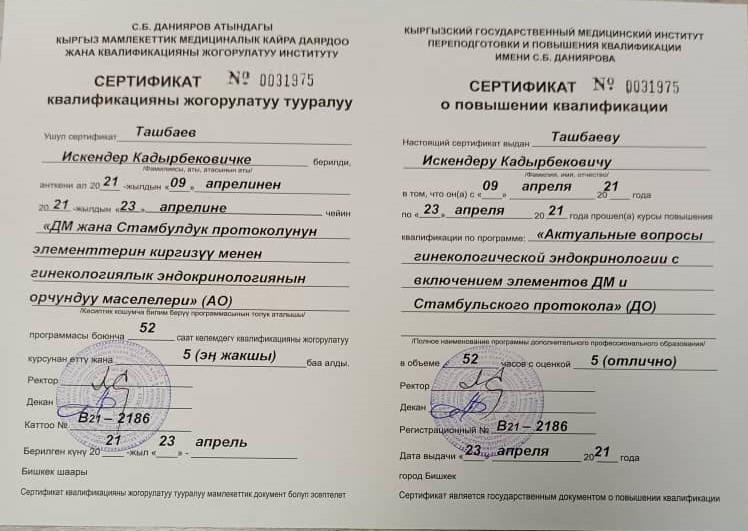 С.Б. ДАНИЯРОВ АТЫНДАГЫ
КЫРГЫЗ МАМЛЕКЕТТИК МЕДИЦИНАЛЫК КАЙРА ДАЯРДОО
ЖАНА КВАЛИФИКАЦИЯНЫ ЖОГОРУЛАТУУ ИНСТИТУТУ
СЕРТИФИКАТ № 0031975
квалификацияны жогорулатуу тууралуу
Ушул сертификат Ташбаев
Искендер Кадырбековичке берилди,
/Фамилиясы, аты, атасынын аты/
анткени ал 2021 -жылдын «09» апрелинен
2021 -жылдын «23» апрелине чейин
«ДМ жана Стамбулдук протоколунун
элементтерин киргизүү менен
гинекологиялык эндокринологиянын
орчундуу маселелери» (АО)
/Кесиптик кошумча билим берүү программасынын толук аталышы/
программасы боюнча 52 саат көлөмдөгү квалификацияны жогорулатуу
курсунан өттү жана 5 (эң жакшы) баа алды.
Ректор
Декан
Каттоо № В21 – 2186
Берилген күнү 2021 -жыл «23» - апрель
Бишкек шаары
Сертификат квалификацияны жогорулатуу тууралуу мамлекеттик документ болуп эсептелет
КЫРГЫЗСКИЙ ГОСУДАРСТВЕННЫЙ МЕДИЦИНСКИЙ ИНСТИТУТ
ПЕРЕПОДГОТОВКИ И ПОВЫШЕНИЯ КВАЛИФИКАЦИИ
ИМЕНИ С.Б. ДАНИЯРОВА
СЕРТИФИКАТ № 0031975
о повышении квалификации
Настоящий сертификат выдан Ташбаеву
Искендеру Кадырбековичу
/Фамилия, имя, отчество/
в том, что он(а) с «09» апреля 2021 года
по «23» апреля 2021 года прошел(а) курсы повышения
квалификации по программе: «Актуальные вопросы
гинекологической эндокринологии с
включением элементов ДМ и
Стамбульского протокола» (ДО)
/Полное наименование программы дополнительного профессионального образования/
в объеме 52 часов с оценкой 5 (отлично)
Ректор
Декан
Регистрационный № В21 – 2186
Дата выдачи «23» апреля 2021 года
город Бишкек
Сертификат является государственным документом о повышении квалификации